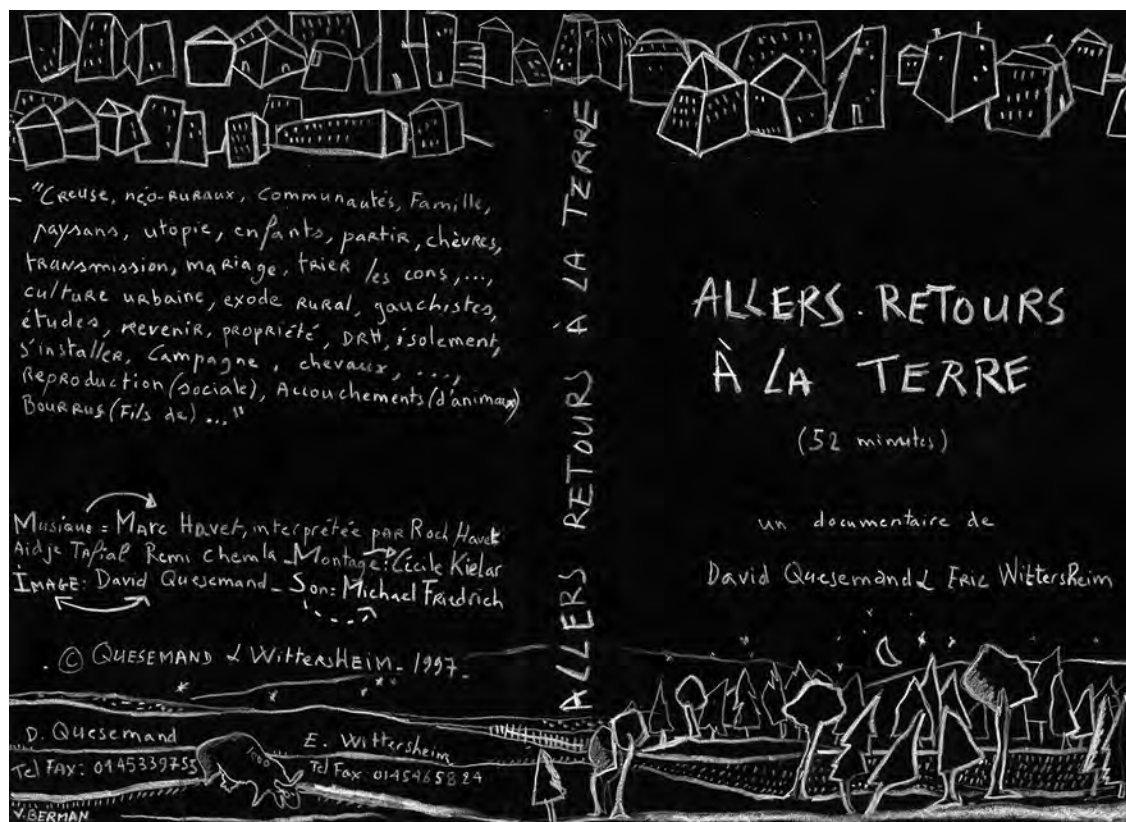 "Creuse, néo-ruraux, communautés, Famille,
paysans, utopie, enfants, partir, chèvres,
transmission, mariage, trier les cons, ...,
culture urbaine, exode rural, gauchistes,
études, revenir, propriété, DRH, isolement,
s'installer, Campagne, chevaux, ...,
Reproduction (sociale), Accouchements (d'animaux)
Bourrus (Fils de) ..."
Musique = Marc Havet, interprétée par Roch Havet
Aidje Tafial Remi Chemla _ Montage: Cécile Kielar
IMAGE: David Quesemand _ Son: Michael Friedrich
. © QUESEMAND & WITTERSHEIM _ 1997 _
D. Quesemand
Tel FAX: 0145339755
E. Wittersheim
Tel Fax: 0145465824
V. BERMAN
ALLERS RETOURS À LA TERRE
ALLERS. RETOURS
À LA TERRE
(52 minutes)
un documentaire de
David Quesemand & Eric Wittersheim